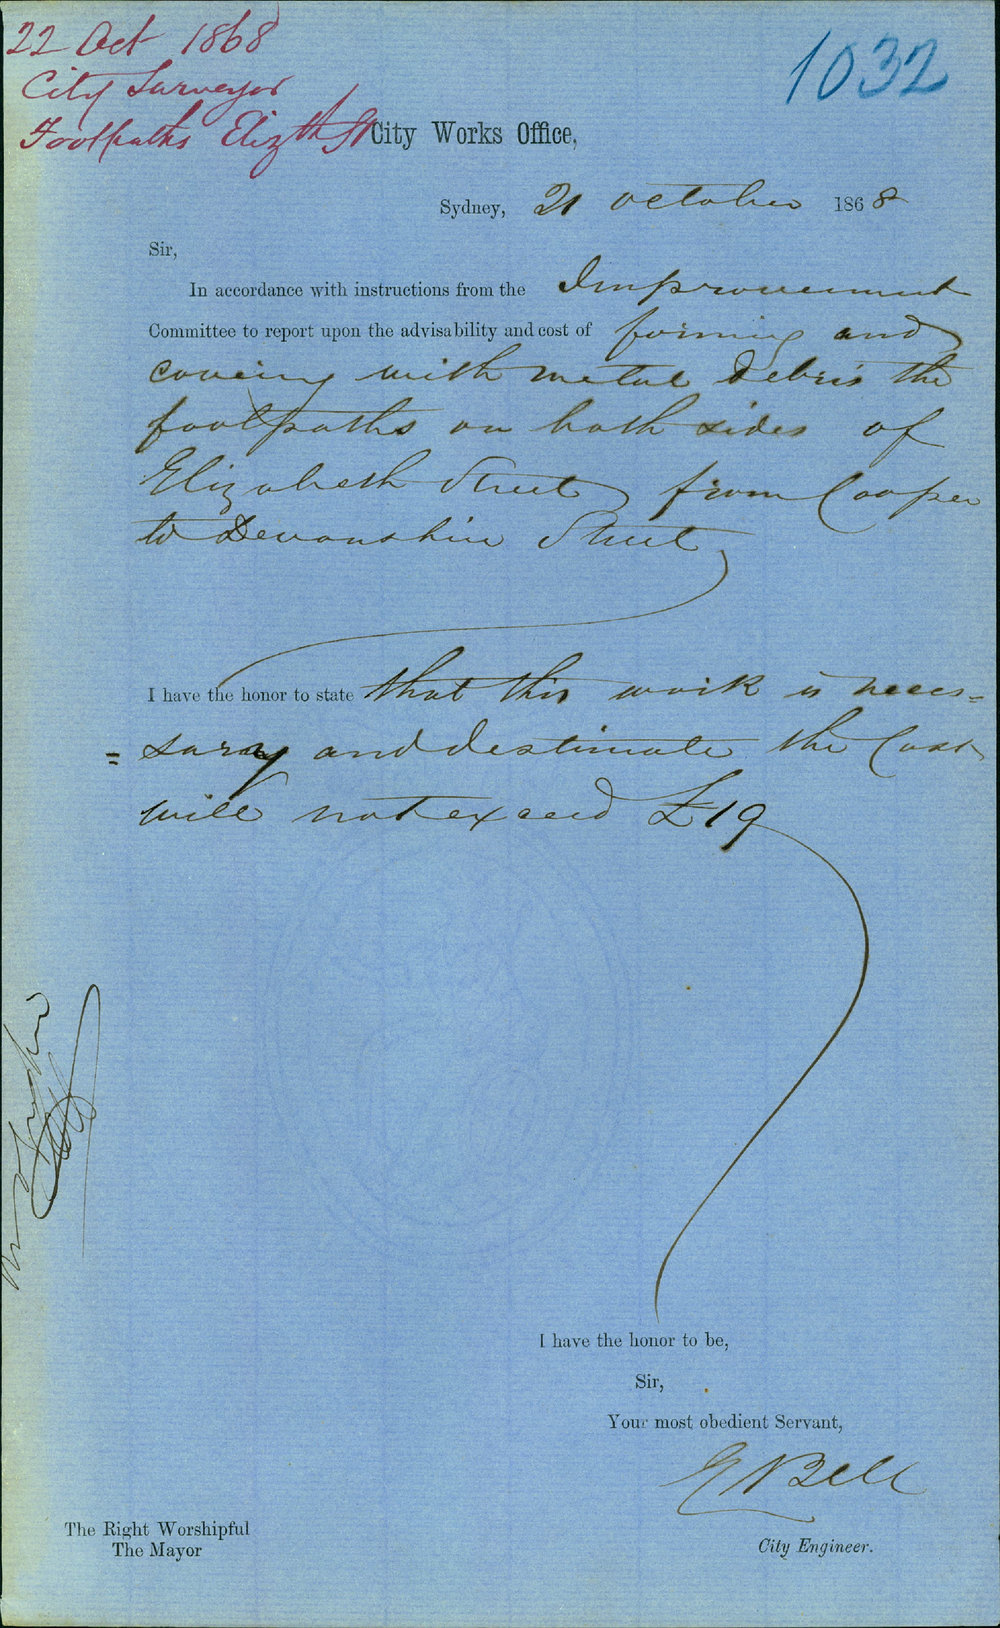 22 Oct 1868
City Surveyor
Footpaths Elizth St
1032
City Works Office,
Sydney, 21 October 1868
Sir,
In accordance with instructions from the Improvement
Committee to report upon the advisability and cost of forming and
covering with metal debris the
footpaths on both sides of
Elizabeth Street from Cooper
to Devonshire Street
I have the honor to state that this work is neces=
=sary and estimate the Cost
will not exceed £19
I have the honor to be,
Sir,
Your most obedient Servant,
E Bell
City Engineer.
The Right Worshipful
The Mayor